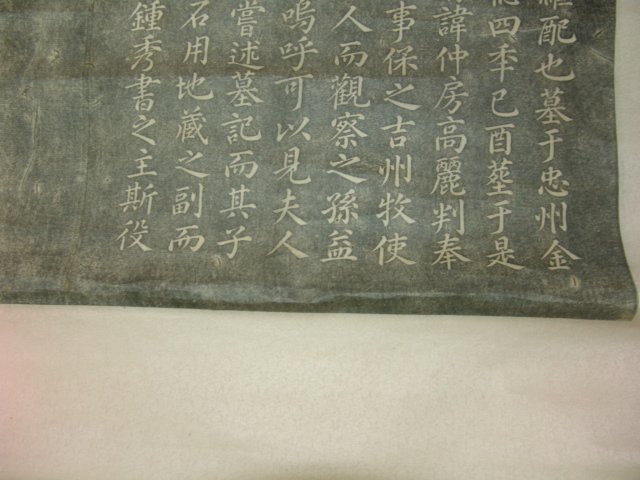 配也墓于忠州金
四季己酉塟于是
諱仲房高麗判奉
事保之吉州牧使
人而觀察之孫益
嗚呼可以見夫人
嘗述墓記而其子
石用地藏之副而
鍾秀書之王斯役